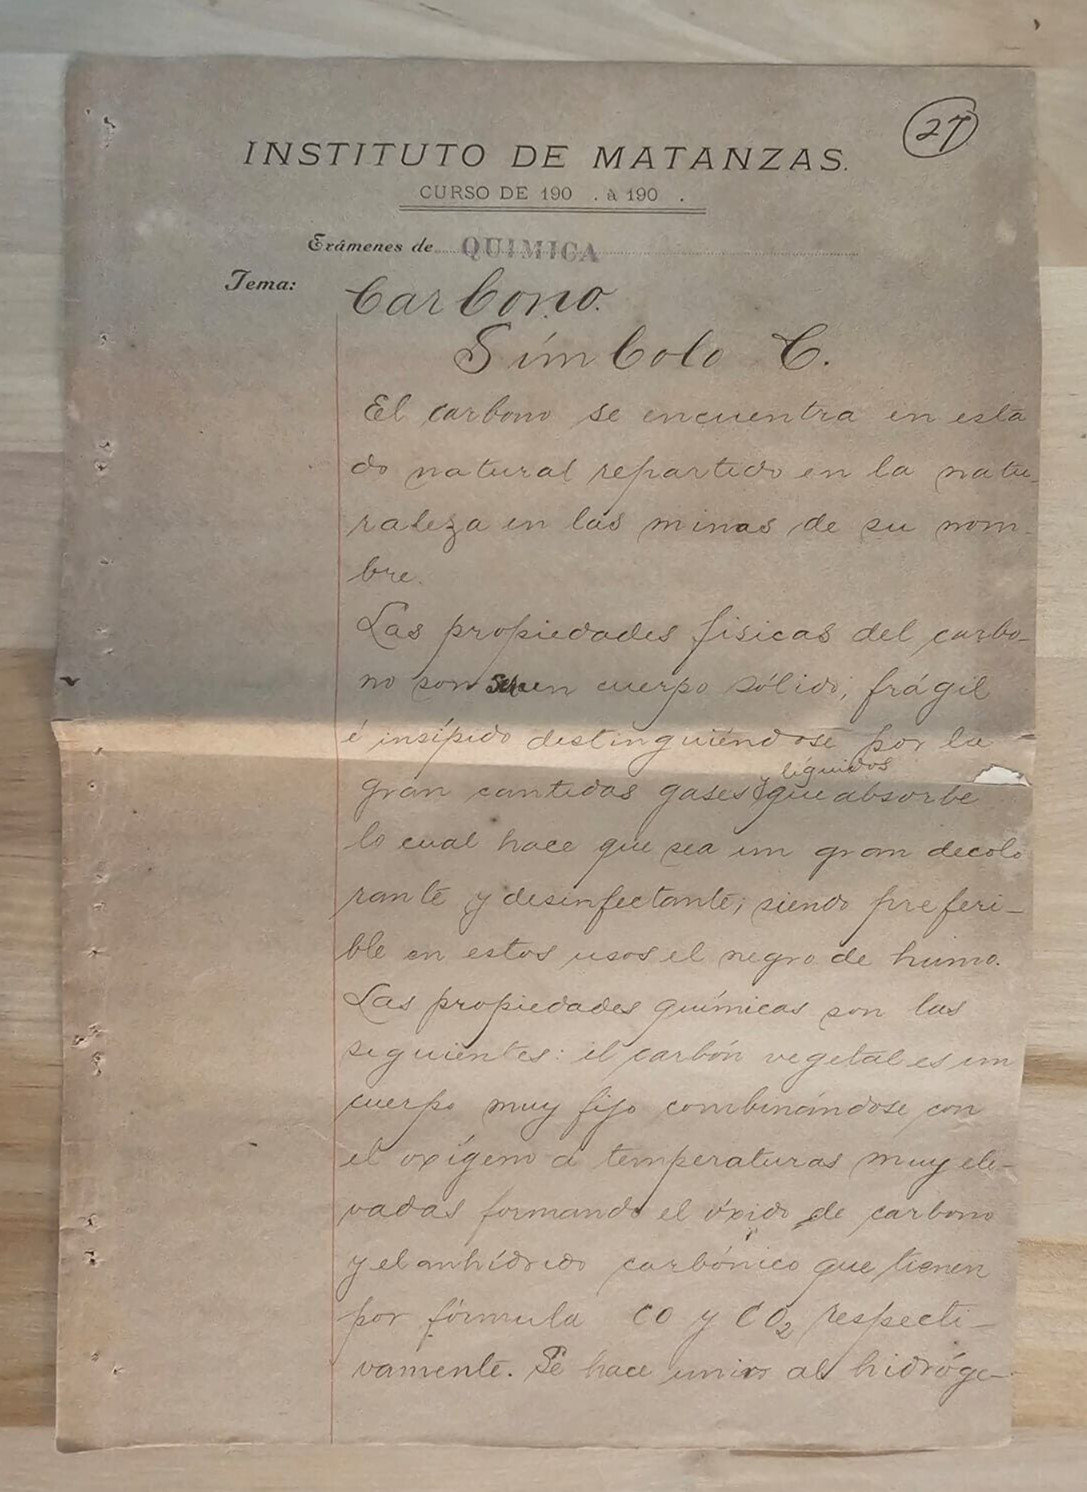 27
INSTITUTO DE MATANZAS.
CURSO DE 190 . à 190 .
Exámenes de QUIMICA
Tema: Carbono.
Símbolo C.
El carbono se encuentra en esta
do natural repartido en la natu-
raleza en las minas de su nom-
bre.
Las propiedades fisicas del carbo-
no son ser un cuerpo sólido, frágil
é insípido destinguiéndose por la
líquidos
gran cantidas gases y que absorbe
lo cual hace que sea un gran decolo
rante y desinfectante; siendo preferi-
ble en estos usos el negro de humo.
Las propiedades químicas son las
siguientes: el carbón vegetal es un
cuerpo muy fijo combinándose con
el oxígeno á temperaturas muy ele-
vadas formando el óxido de carbono
y el anhídrido carbónico que tienen
por fórmula CO y CO₂ respecti-
vamente. Se hace unir al hidróge-